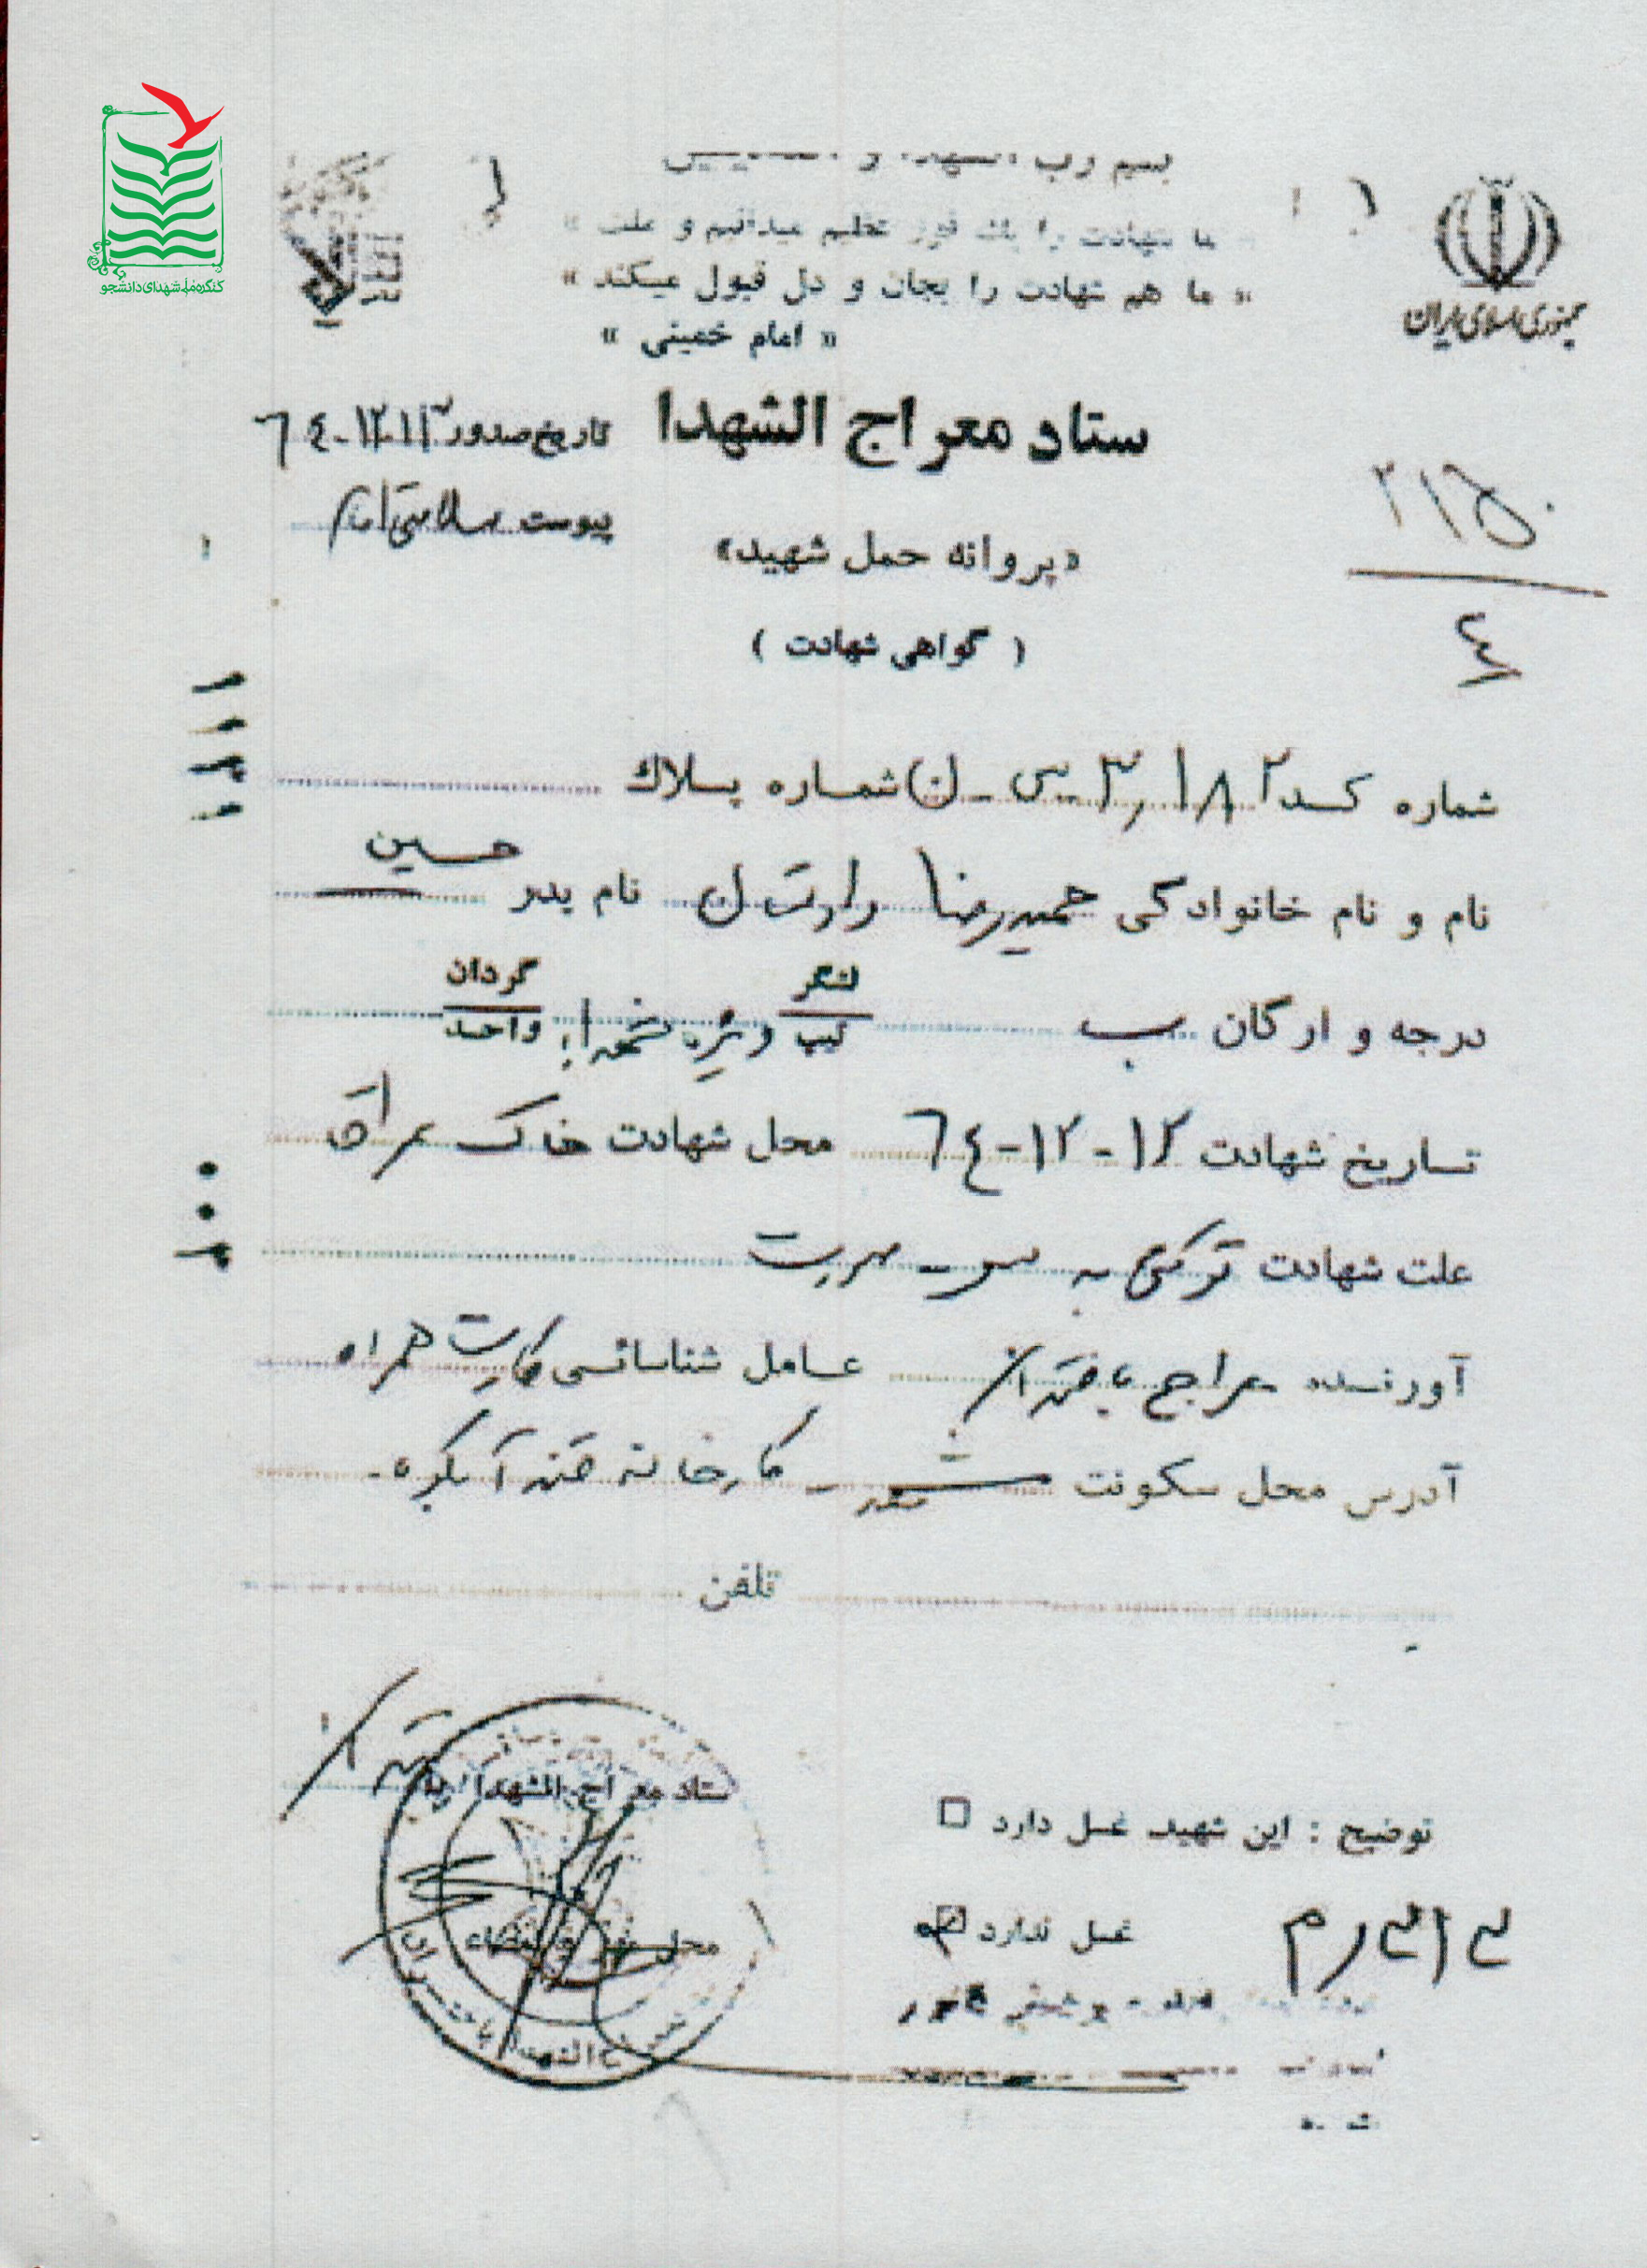 کنگره ملی شهدای دانشجو
بسم رب الشهداء و
ما شهادت را یك فوز عظیم میدانیم و ملت »
« ما هم شهادت را بجان و دل قبول میکند »
« امام خمینی »
جمهوری اسلامی ایران
ستاد معراج الشهدا
تاریخ صدور ۱۳-۱۲-٦٤
پیوست
«پروانه حمل شهید»
( گواهی شهادت )
شماره کد ۳٫۱۸۲ س - ن شماره پلاك
نام و نام خانوادگی حمیدرضا نام پدر حسین
درجه و ارگان ب لشگر تیپ ویژه شهدا گردان واحد
تاریخ شهادت ۱۲-۱۲-٦٤ محل شهادت خاک عراق
علت شهادت ترکش به سر -
آورنده معراج باختران عامل شناسائی کارت همراه
آدرس محل سکونت مشهد - کارخانه قند آبکوه -
تلفن
توضیح : این شهید غسل دارد
غسل ندارد
ستاد معراج الشهدا
محل مهر و امضاء